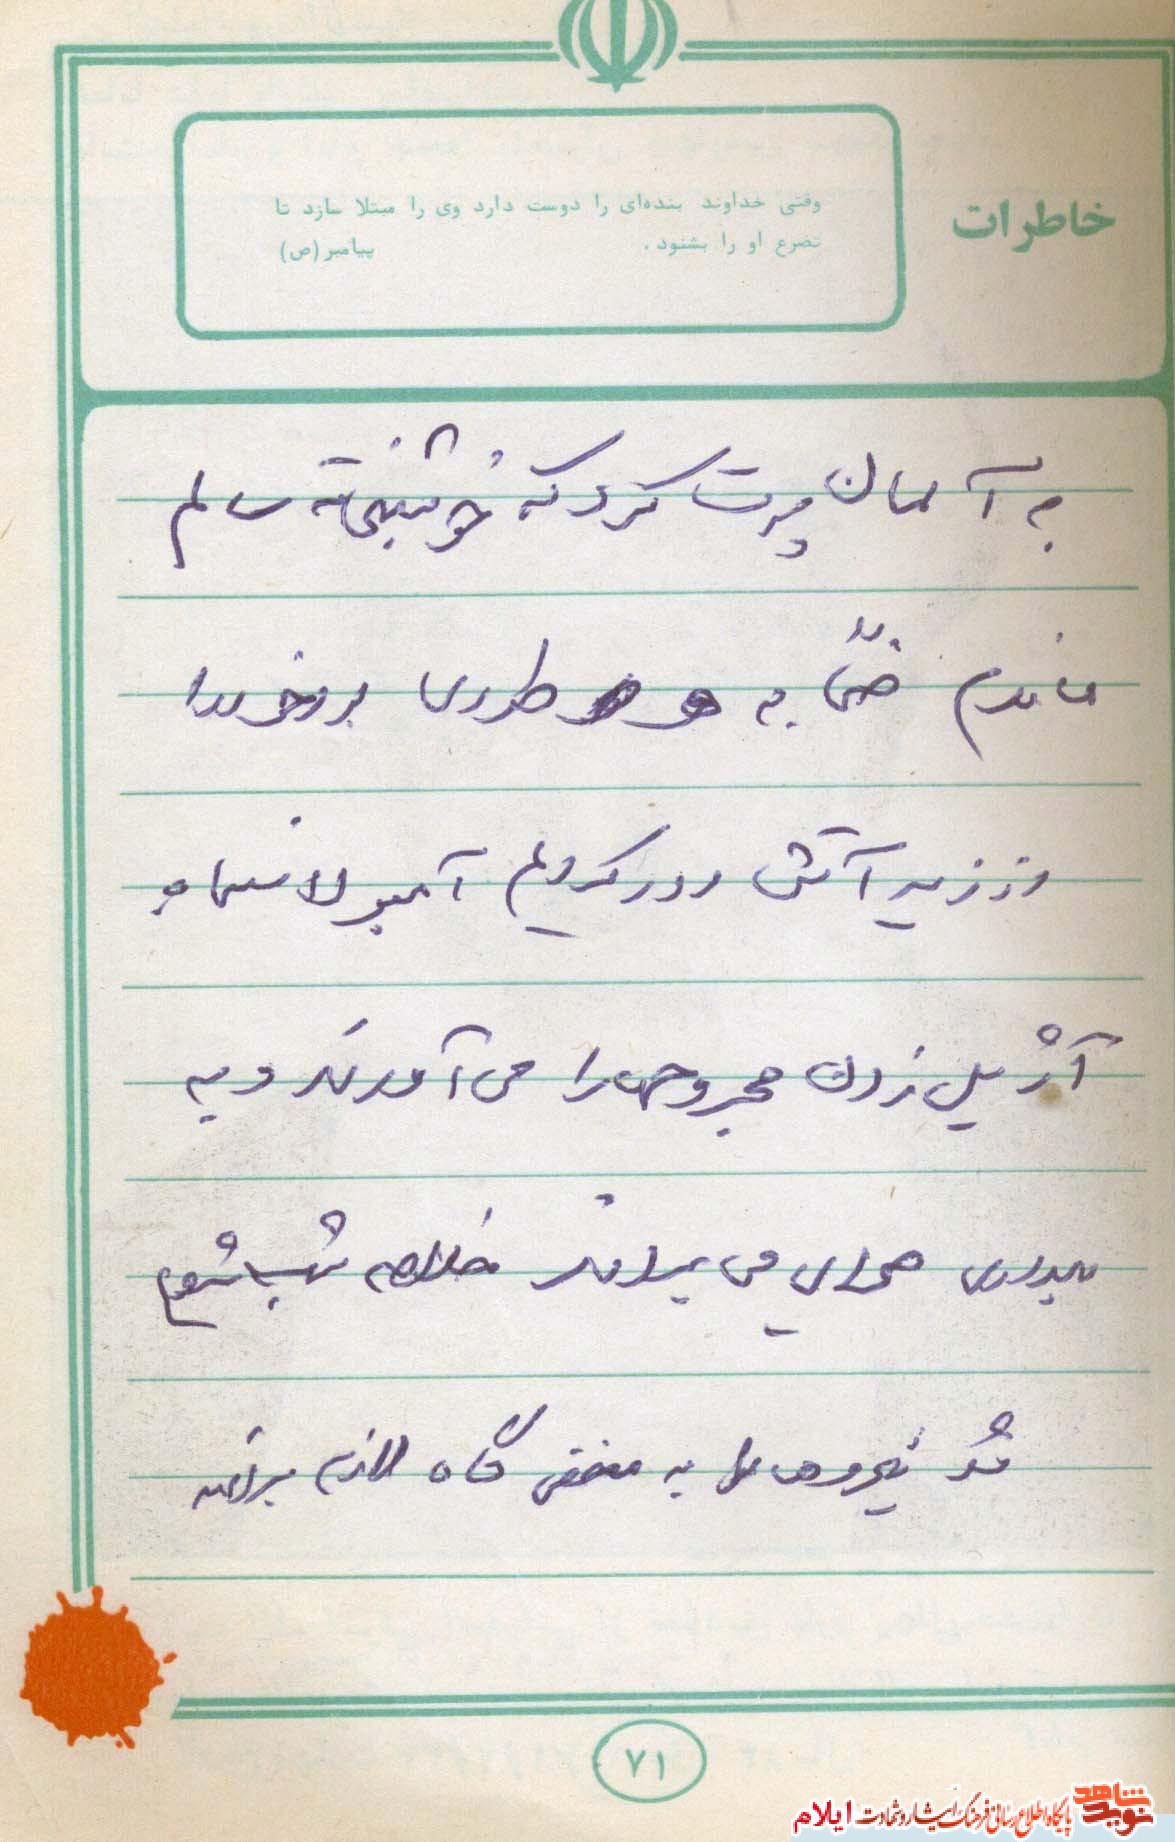 خاطرات
وقتی خداوند بنده‌ای را دوست دارد وی را مبتلا سازد تا
تضرع او را بشنود.
پیامبر(ص)
به آسمان پرت کرد که خوشبختانه سالم
ماندم ضمناً به هر طوری بود خود را
از زیر آتش دور کردیم آمبولانسها و
آژیر زدن مجروحها را می‌آوردند و به
صحرایی می‌بردند خلاصه شب شروع
شد نیروها به مخفی گاه لازم بردند
۷۱
نوید شاهد
پایگاه اطلاع رسانی فرهنگ ایثار و شهادت ایلام